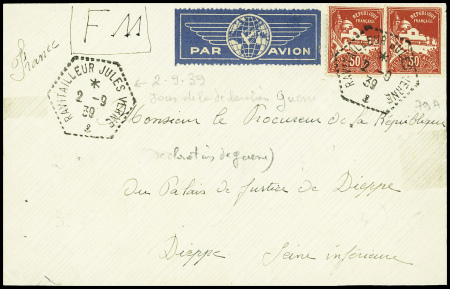 F M
PAR AVION
RÉPUBLIQUE FRANÇAISE
RÉPUBLIQUE FRANÇAISE
50
50
France
RAVITAILLEUR JULES VERNE
*
2-9
39
RAVITAILLEUR JULES VERNE
*
2-9
39
2-9-39
Jour de la déclaration Guerre
Monsieur le Procureur de la République
(déclaration de guerre)
du Palais de Justice de Dieppe
Dieppe Seine inférieure